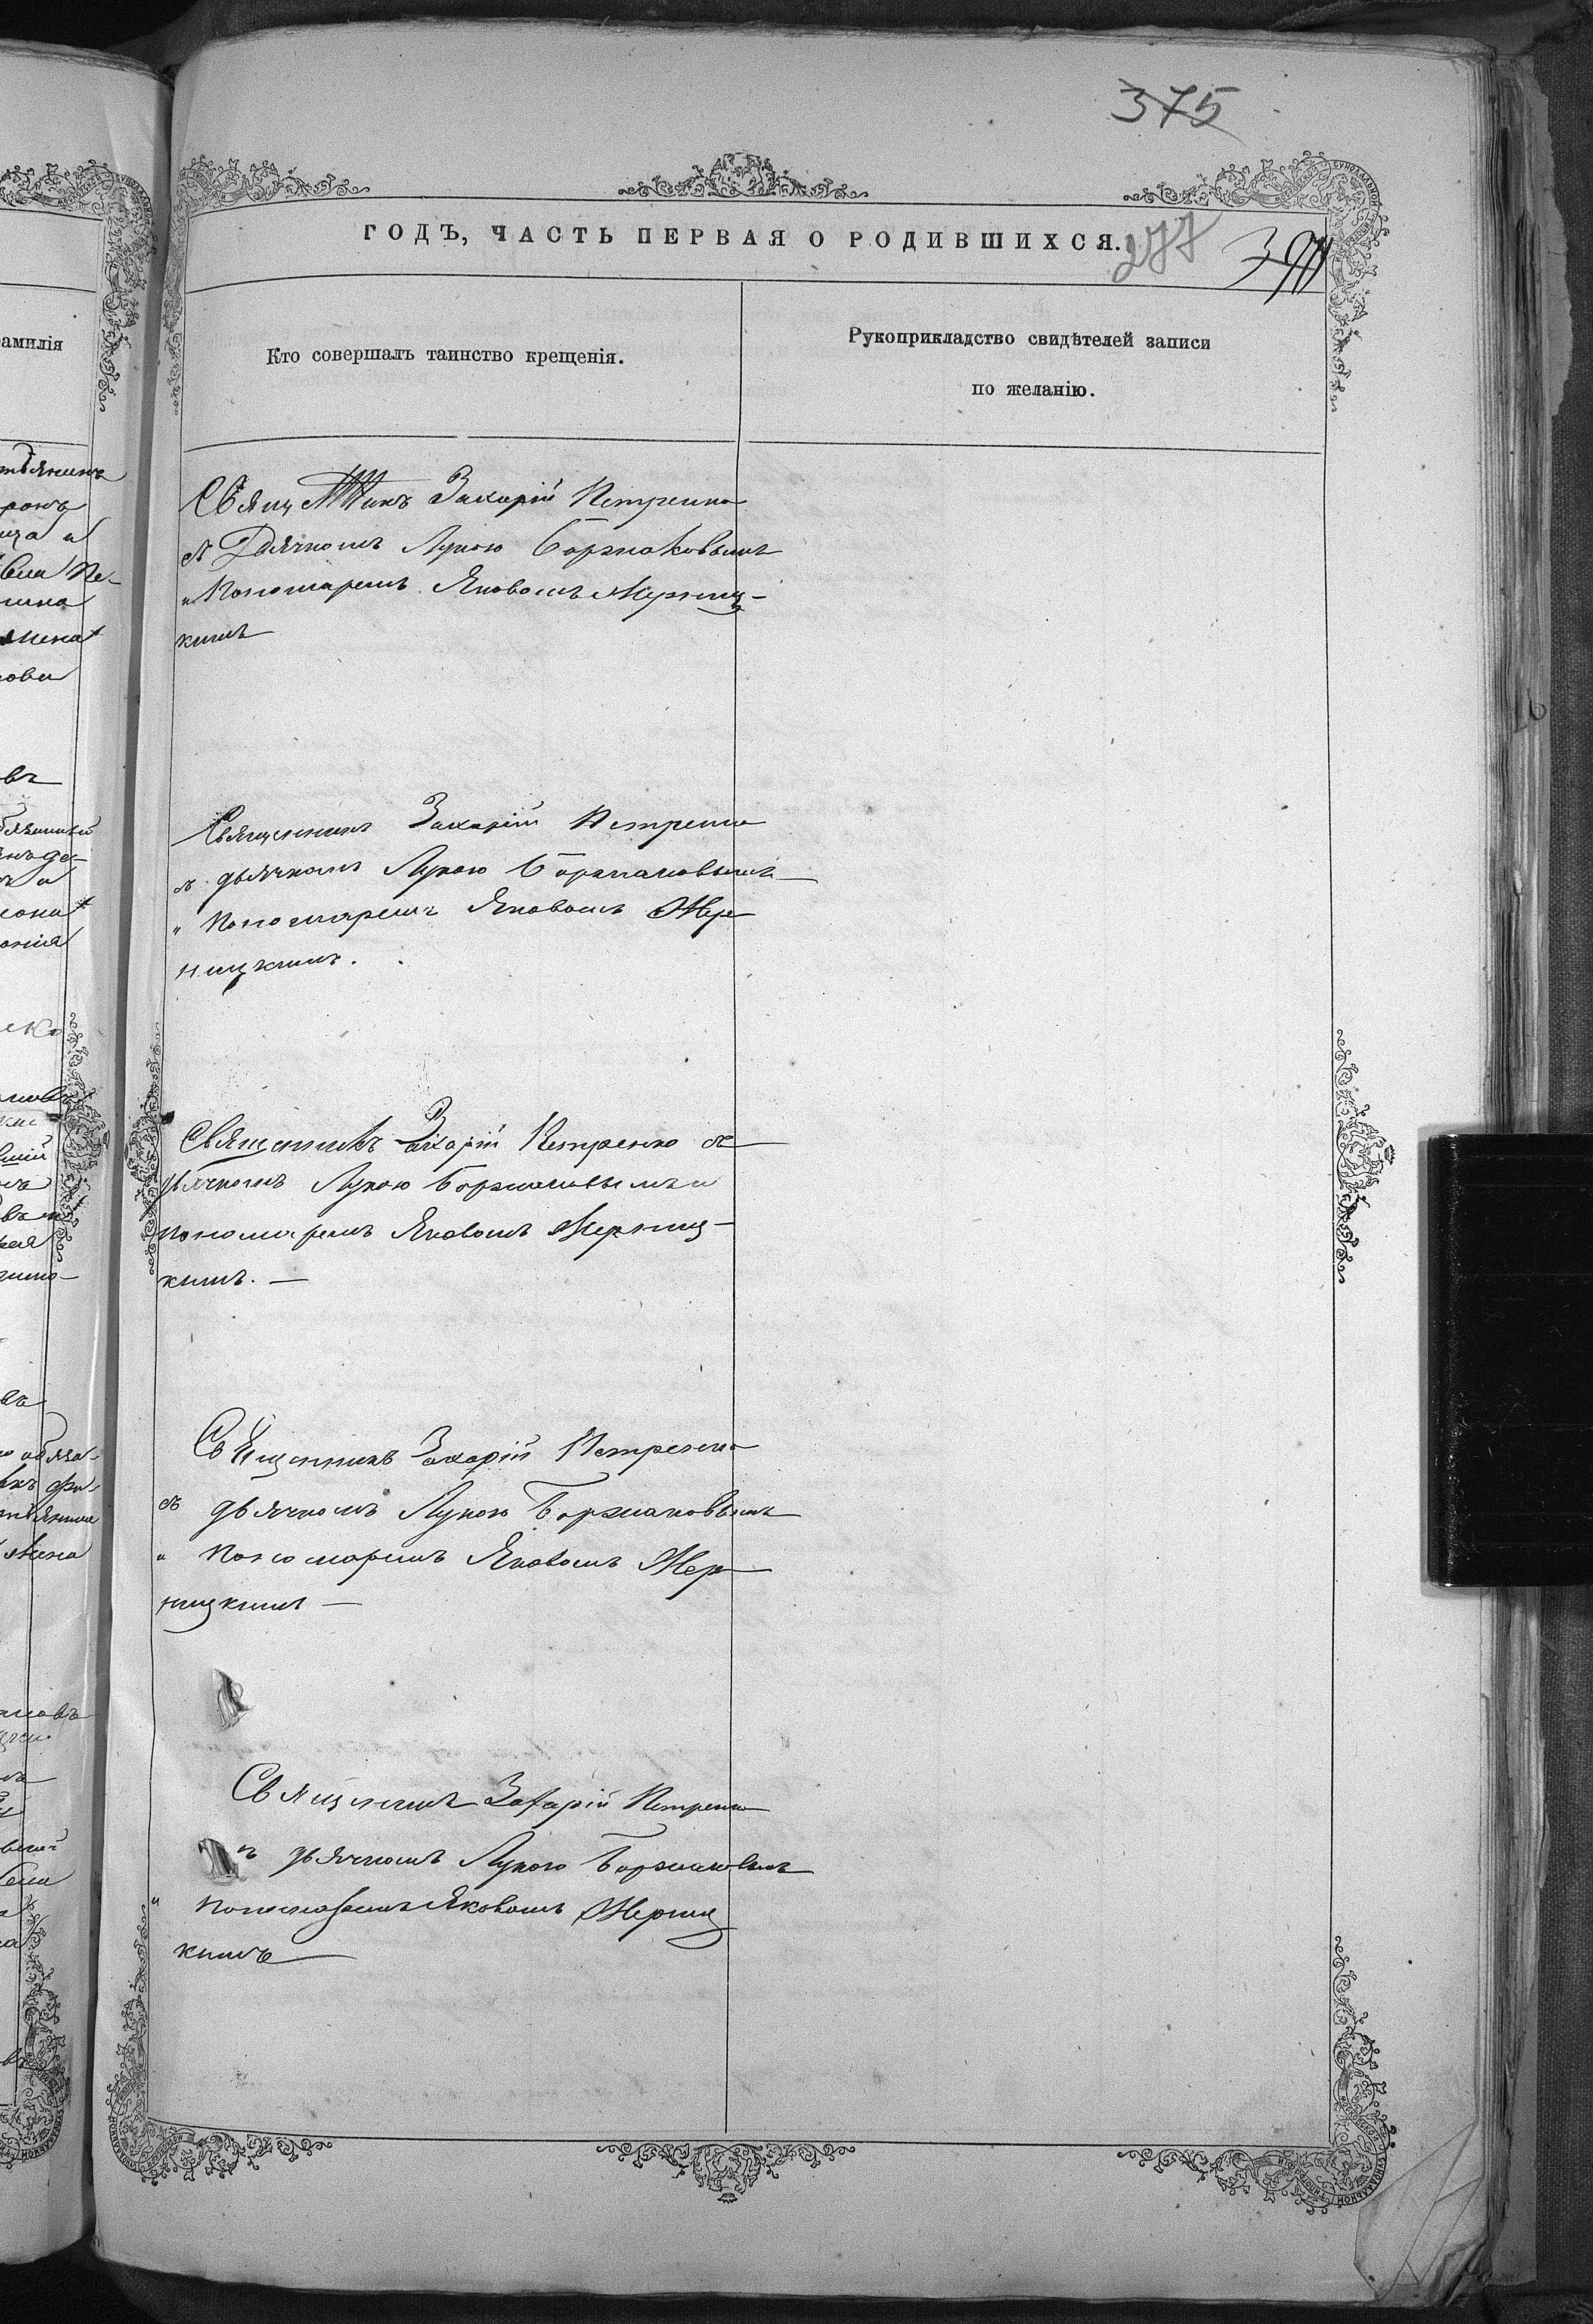 375
ГОДЪ, ЧАСТЬ ПЕРВАЯ О РОДИВШИХСЯ.
277
Кто совершалъ таинство крещенія.
Рукоприкладство свидѣтелей записи
по желанію.
амилія
Священникъ Захарій Петренко
съ Дьячкомъ Лукою Боржаковымъ
и Пономаремъ Яковомъ Жерниц-
кимъ
Священникъ Захарій Петренко
съ дьячкомъ Лукою Боржаковымъ
и Пономаремъ Яковомъ Жер-
ницкимъ.
Священникъ Захарій Петренко съ
дьячкомъ Лукою Боржаковымъ и
пономаремъ Яковомъ Жерниц-
кимъ. —
Священникъ Захарій Петренко
съ дьячкомъ Лукою Боржаковымъ
и Пономаремъ Яковомъ Жер-
ницкимъ —
Священникъ Захарій Петренко
съ дьячкомъ Лукою Боржаковымъ
и пономаремъ Яковомъ Жерниц
кимъ —